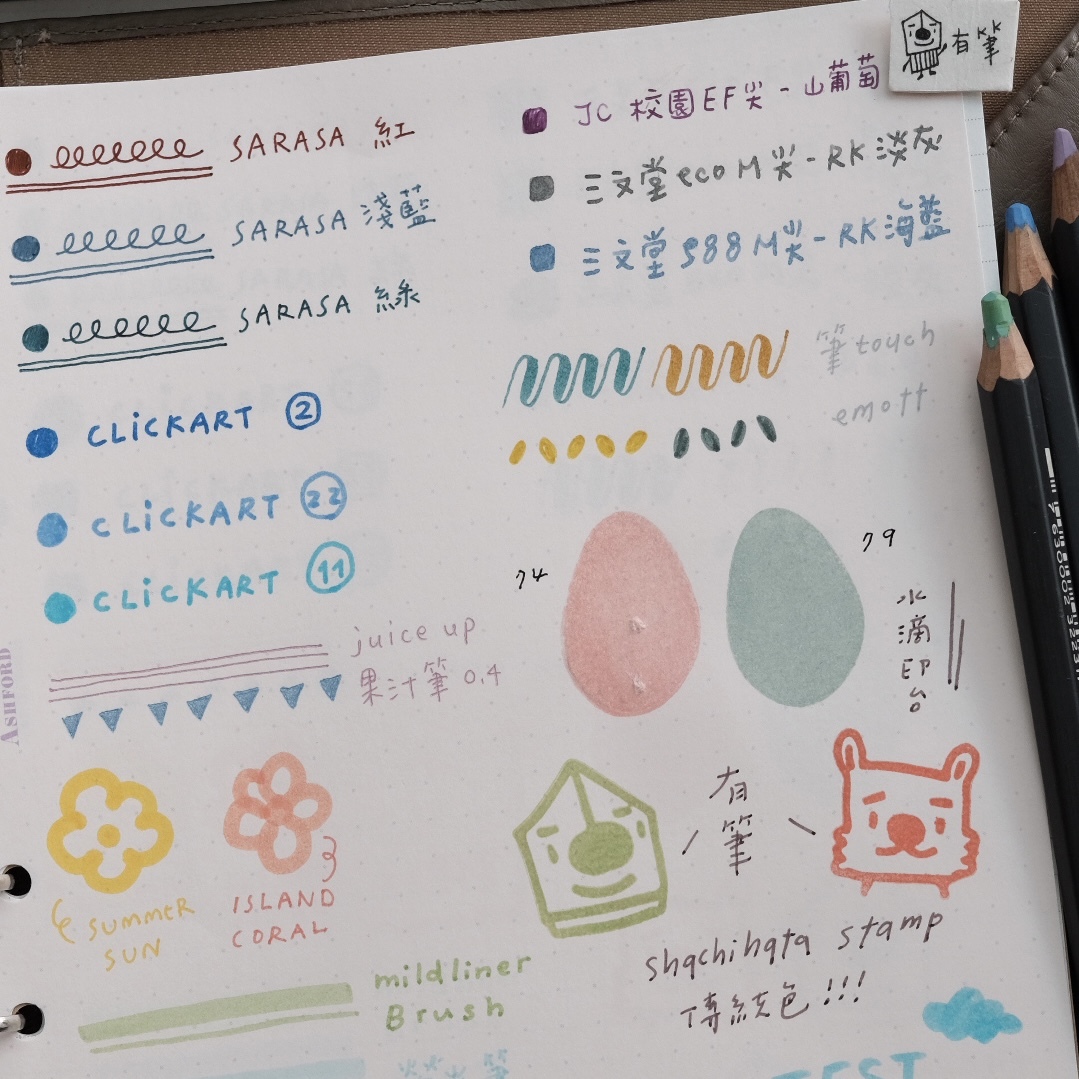 有筆
SARASA 紅
SARASA 淺藍
SARASA 綠
CLiCKART ②
CLiCKART 22
CLiCKART 11
juice up
果汁筆 0.4
ASHFORD
SUMMER
SUN
ISLAND
CORAL
mildliner
Brush
JC 校園EF尖 - 山葡萄
三文堂 eco M尖 - RK 淡灰
三文堂 988 M尖 - RK 海藍
筆touch
emott
74
79
水滴印台
有筆
shachihata stamp
傳統色!!!
TEST